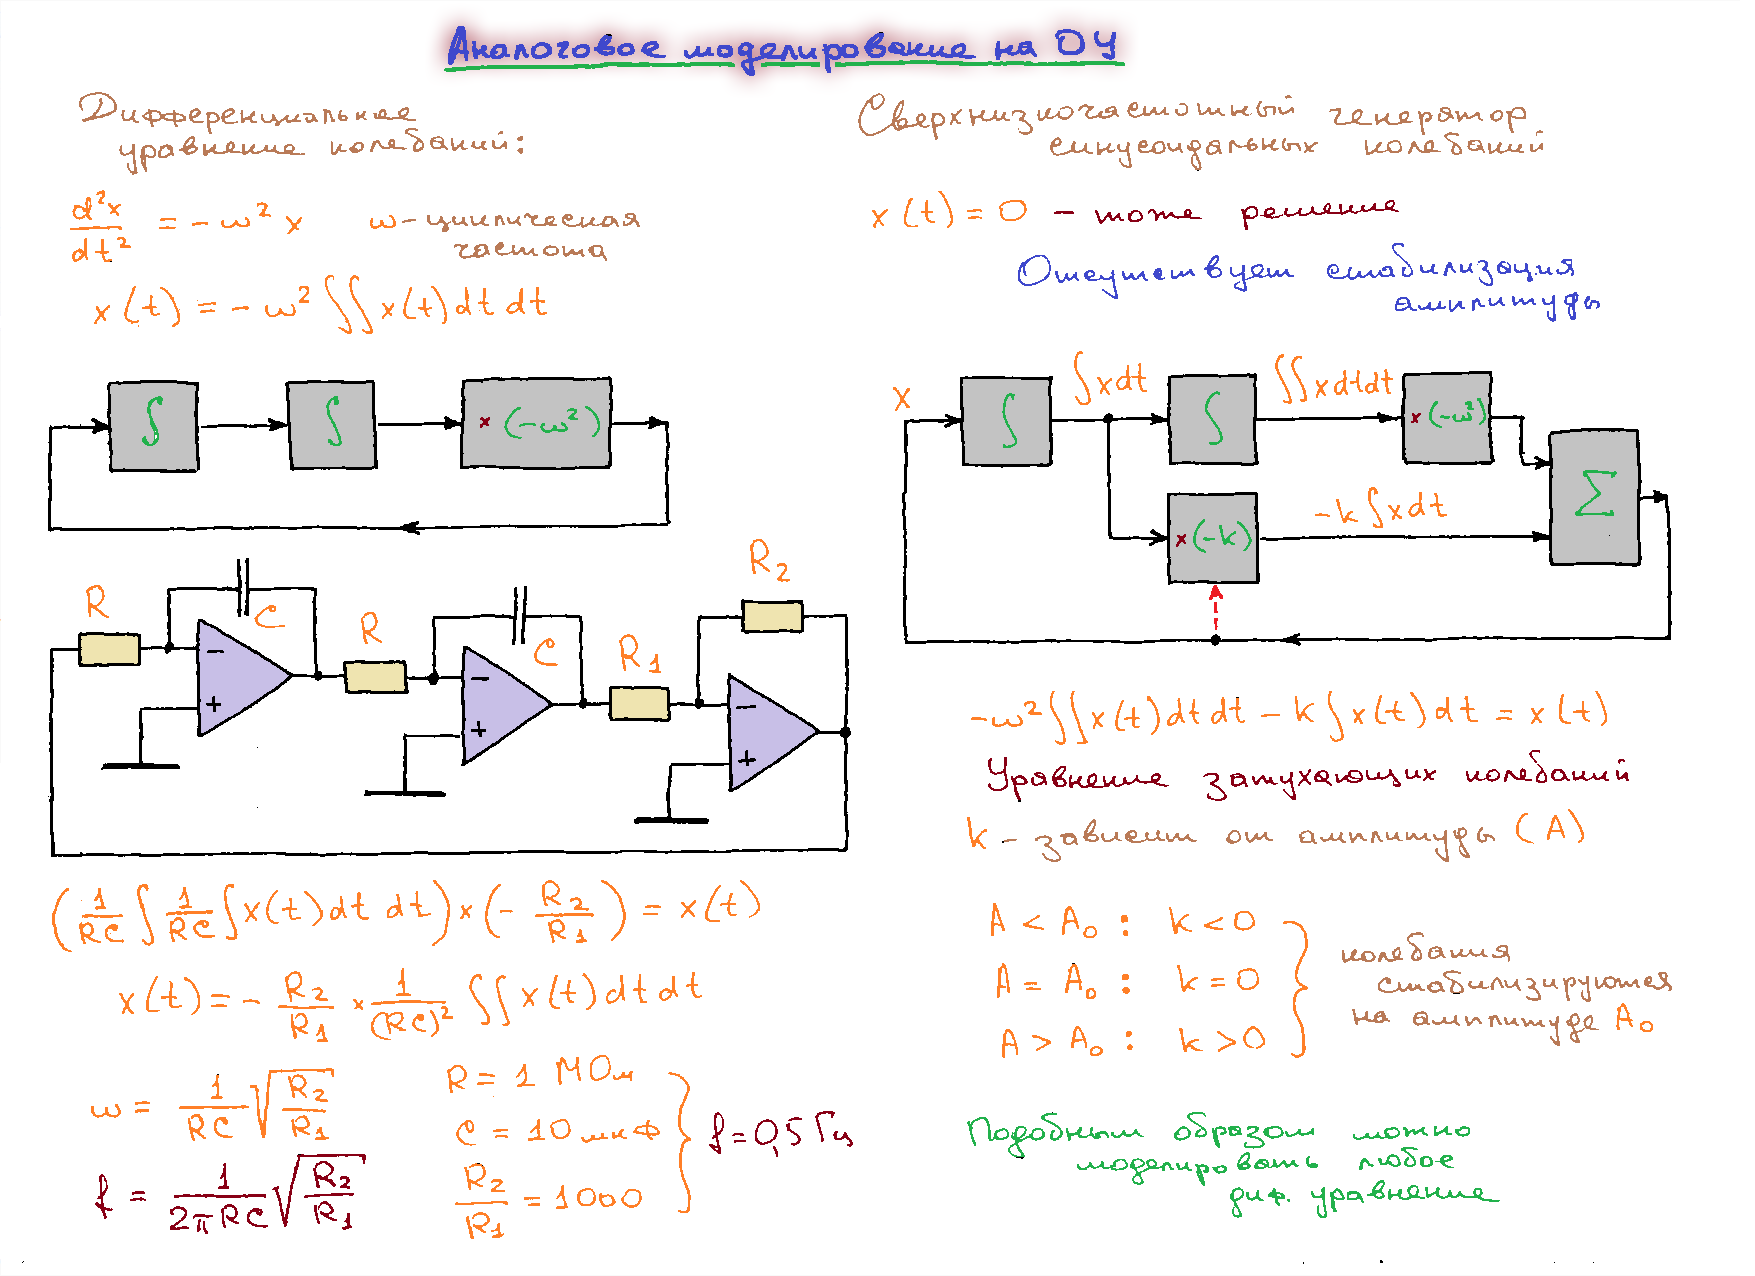 Аналоговое моделирование на ОУ
Дифференциальное
уравнение колебаний:
d²x/dt² = -ω² x
ω - циклическая
частота
x(t) = -ω² ∫∫ x(t) dt dt
∫
∫
× (-ω²)
R
C
R
C
R₁
R₂
-
+
-
+
-
+
(1/RC ∫ 1/RC ∫ x(t) dt dt) × (- R₂/R₁) = x(t)
x(t) = - R₂/R₁ × 1/(RC)² ∫∫ x(t) dt dt
ω = 1/RC √(R₂/R₁)
f = 1/2πRC √(R₂/R₁)
R = 1 МОм
C = 10 мкФ
R₂/R₁ = 1000
f = 0,5 Гц
Сверхнизкочастотный генератор
синусоидальных колебаний
x(t) = 0 - тоже решение
Отсутствует стабилизация
амплитуды
x
∫
∫xdt
∫
∫∫xdtdt
× (-ω²)
Σ
× (-k)
-k∫xdt
-ω² ∫∫ x(t) dt dt - k ∫ x(t) dt = x(t)
Уравнение затухающих колебаний
k - зависит от амплитуды (A)
A < A₀ : k < 0
A = A₀ : k = 0
A > A₀ : k > 0
колебания
стабилизируются
на амплитуде A₀
Подобным образом можно
моделировать любое
диф. уравнение